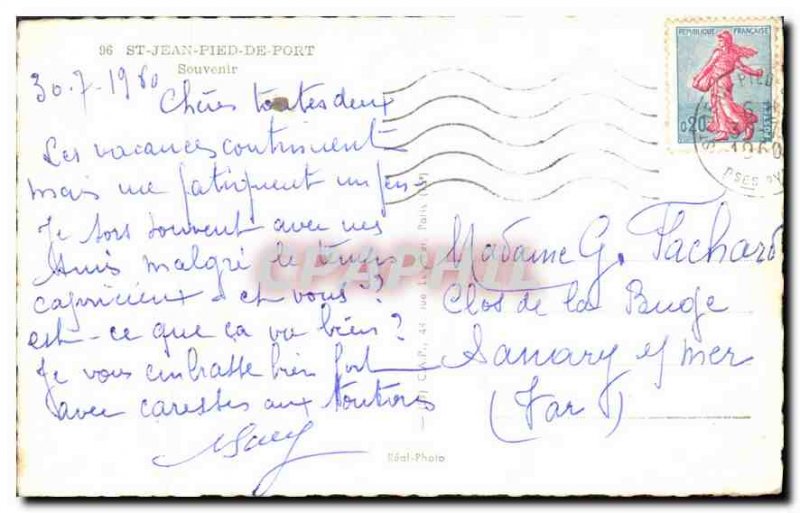 96 ST-JEAN-PIED-DE-PORT
Souvenir
30.7.1960
Chères toutes deux
Les vacances continuent
mais me fatiguent un peu-
Je sors souvent avec mes
Amis malgré le temps
capricieux - et vous ??
est-ce que ça va bien ?
Je vous embrasse bien fort
avec caresses aux toutous
Réal-Photo
RÉPUBLIQUE FRANÇAISE
0,20
POSTES
1960
Madame G. Pachard
Clos de la Buge
Sanary s/mer
(Var)
CPAPHIL